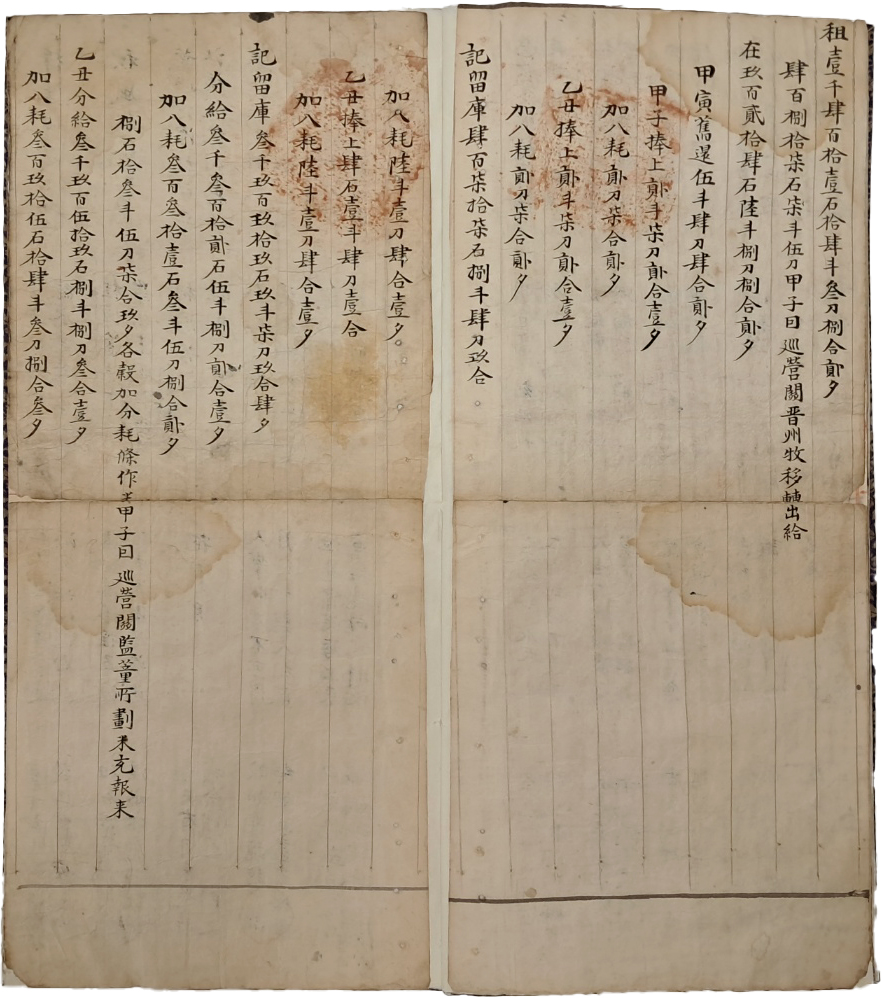 租壹千肆百拾壹石拾肆斗叁刀捌合貳夕
肆百捌拾柒石柒斗伍刀甲子因 巡營關晋州牧移轉出給
在玖百貳拾肆石陸斗捌刀捌合貳夕
甲寅舊還伍斗肆刀肆合貳夕
甲子捧上貳斗柒刀貳合壹夕
加八耗貳刀柒合貳夕
乙丑捧上貳斗柒刀貳合壹夕
加八耗貳刀柒合貳夕
記留庫肆百柒拾柒石捌斗肆刀玖合
加八耗陸斗壹刀肆合壹夕
乙丑捧上肆石壹斗肆刀壹合
加八耗陸斗壹刀肆合壹夕
記留庫叁千玖百玖拾玖石玖斗柒刀玖合肆夕
分給叁千叁百拾貳石伍斗捌刀貳合壹夕
加八耗叁百叁拾壹石叁斗伍刀捌合貳夕
捌石拾叁斗伍刀柒合玖夕各穀加分耗條作米甲子因 巡營關監董所劃米充報來
乙丑分給叁千玖百伍拾玖石捌斗捌刀叁合壹夕
加八耗叁百玖拾伍石拾肆斗叁刀捌合叁夕